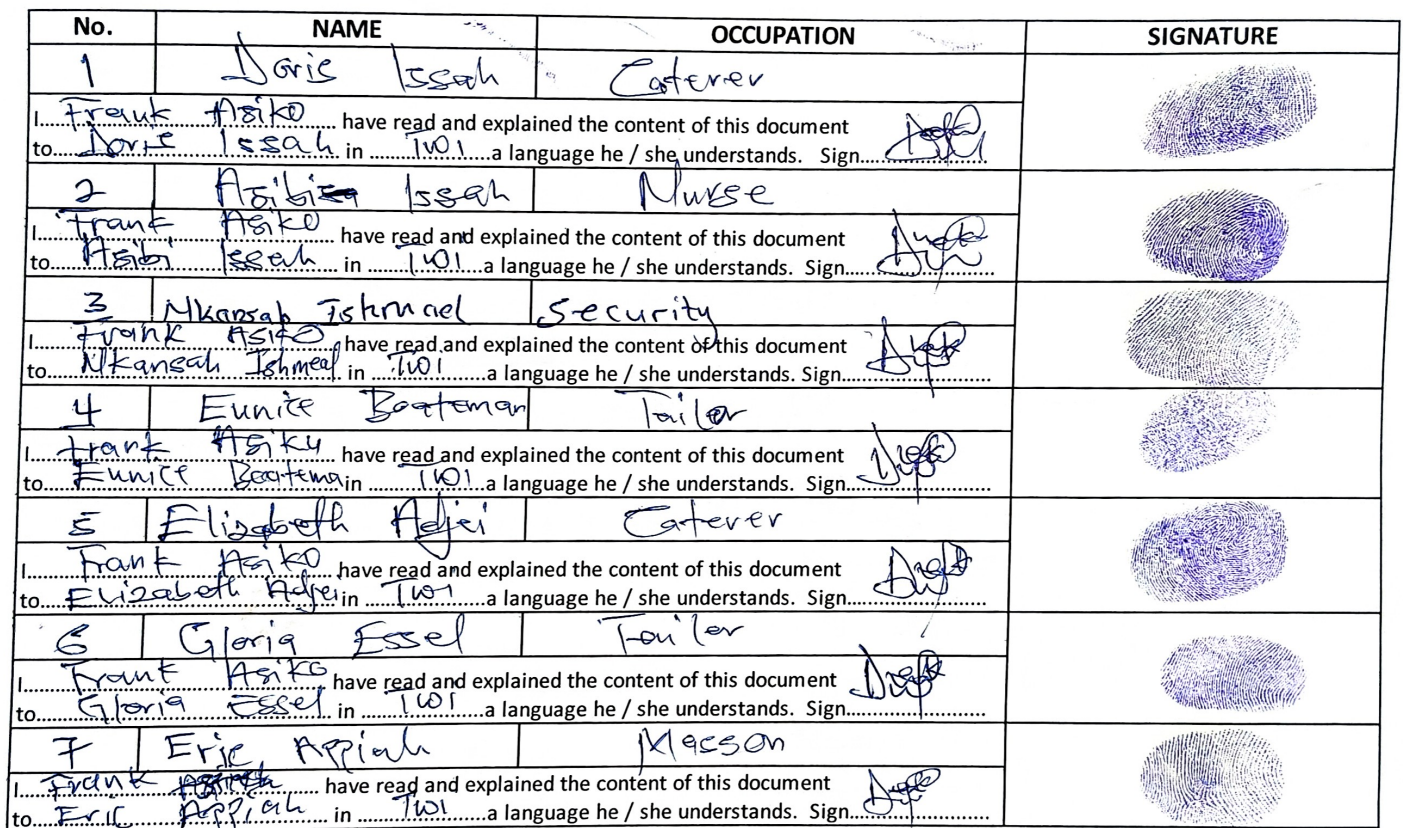 No. NAME OCCUPATION SIGNATURE
1 Doris Issah Caterer
I Frank Asiko have read and explained the content of this document
to Doris Issah in TWI a language he / she understands. Sign
2 Asibi Issah Nurse
I Frank Asiko have read and explained the content of this document
to Asibi Issah in TWI a language he / she understands. Sign
3 Nkansah Ishmael Security
I Frank Asiko have read and explained the content of this document
to Nkansah Ishmeal in TWI a language he / she understands. Sign
4 Eunice Boateman Tailor
I Frank Asiku have read and explained the content of this document
to Eunice Boatema in TWI a language he / she understands. Sign
5 Elizabeth Adjei Caterer
I Frank Asiko have read and explained the content of this document
to Elizabeth Adjei in TWI a language he / she understands. Sign
6 Gloria Essel Tailor
I Frank Asiko have read and explained the content of this document
to Gloria Essel in TWI a language he / she understands. Sign
7 Eric Appiah Masson
I Frank have read and explained the content of this document
to Eric Appiah in TWI a language he / she understands. Sign